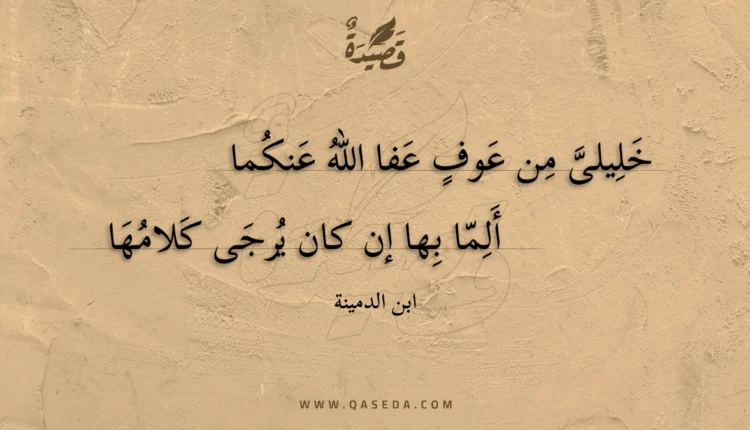 قَصِيدَةٌ
خَلِيلىَّ مِن عَوفٍ عَفا اللهُ عَنكُما
أَلِمّا بِها إن كان يُرجَى كَلامُهَا
ابن الدمينة
WWW.QASEDA.COM